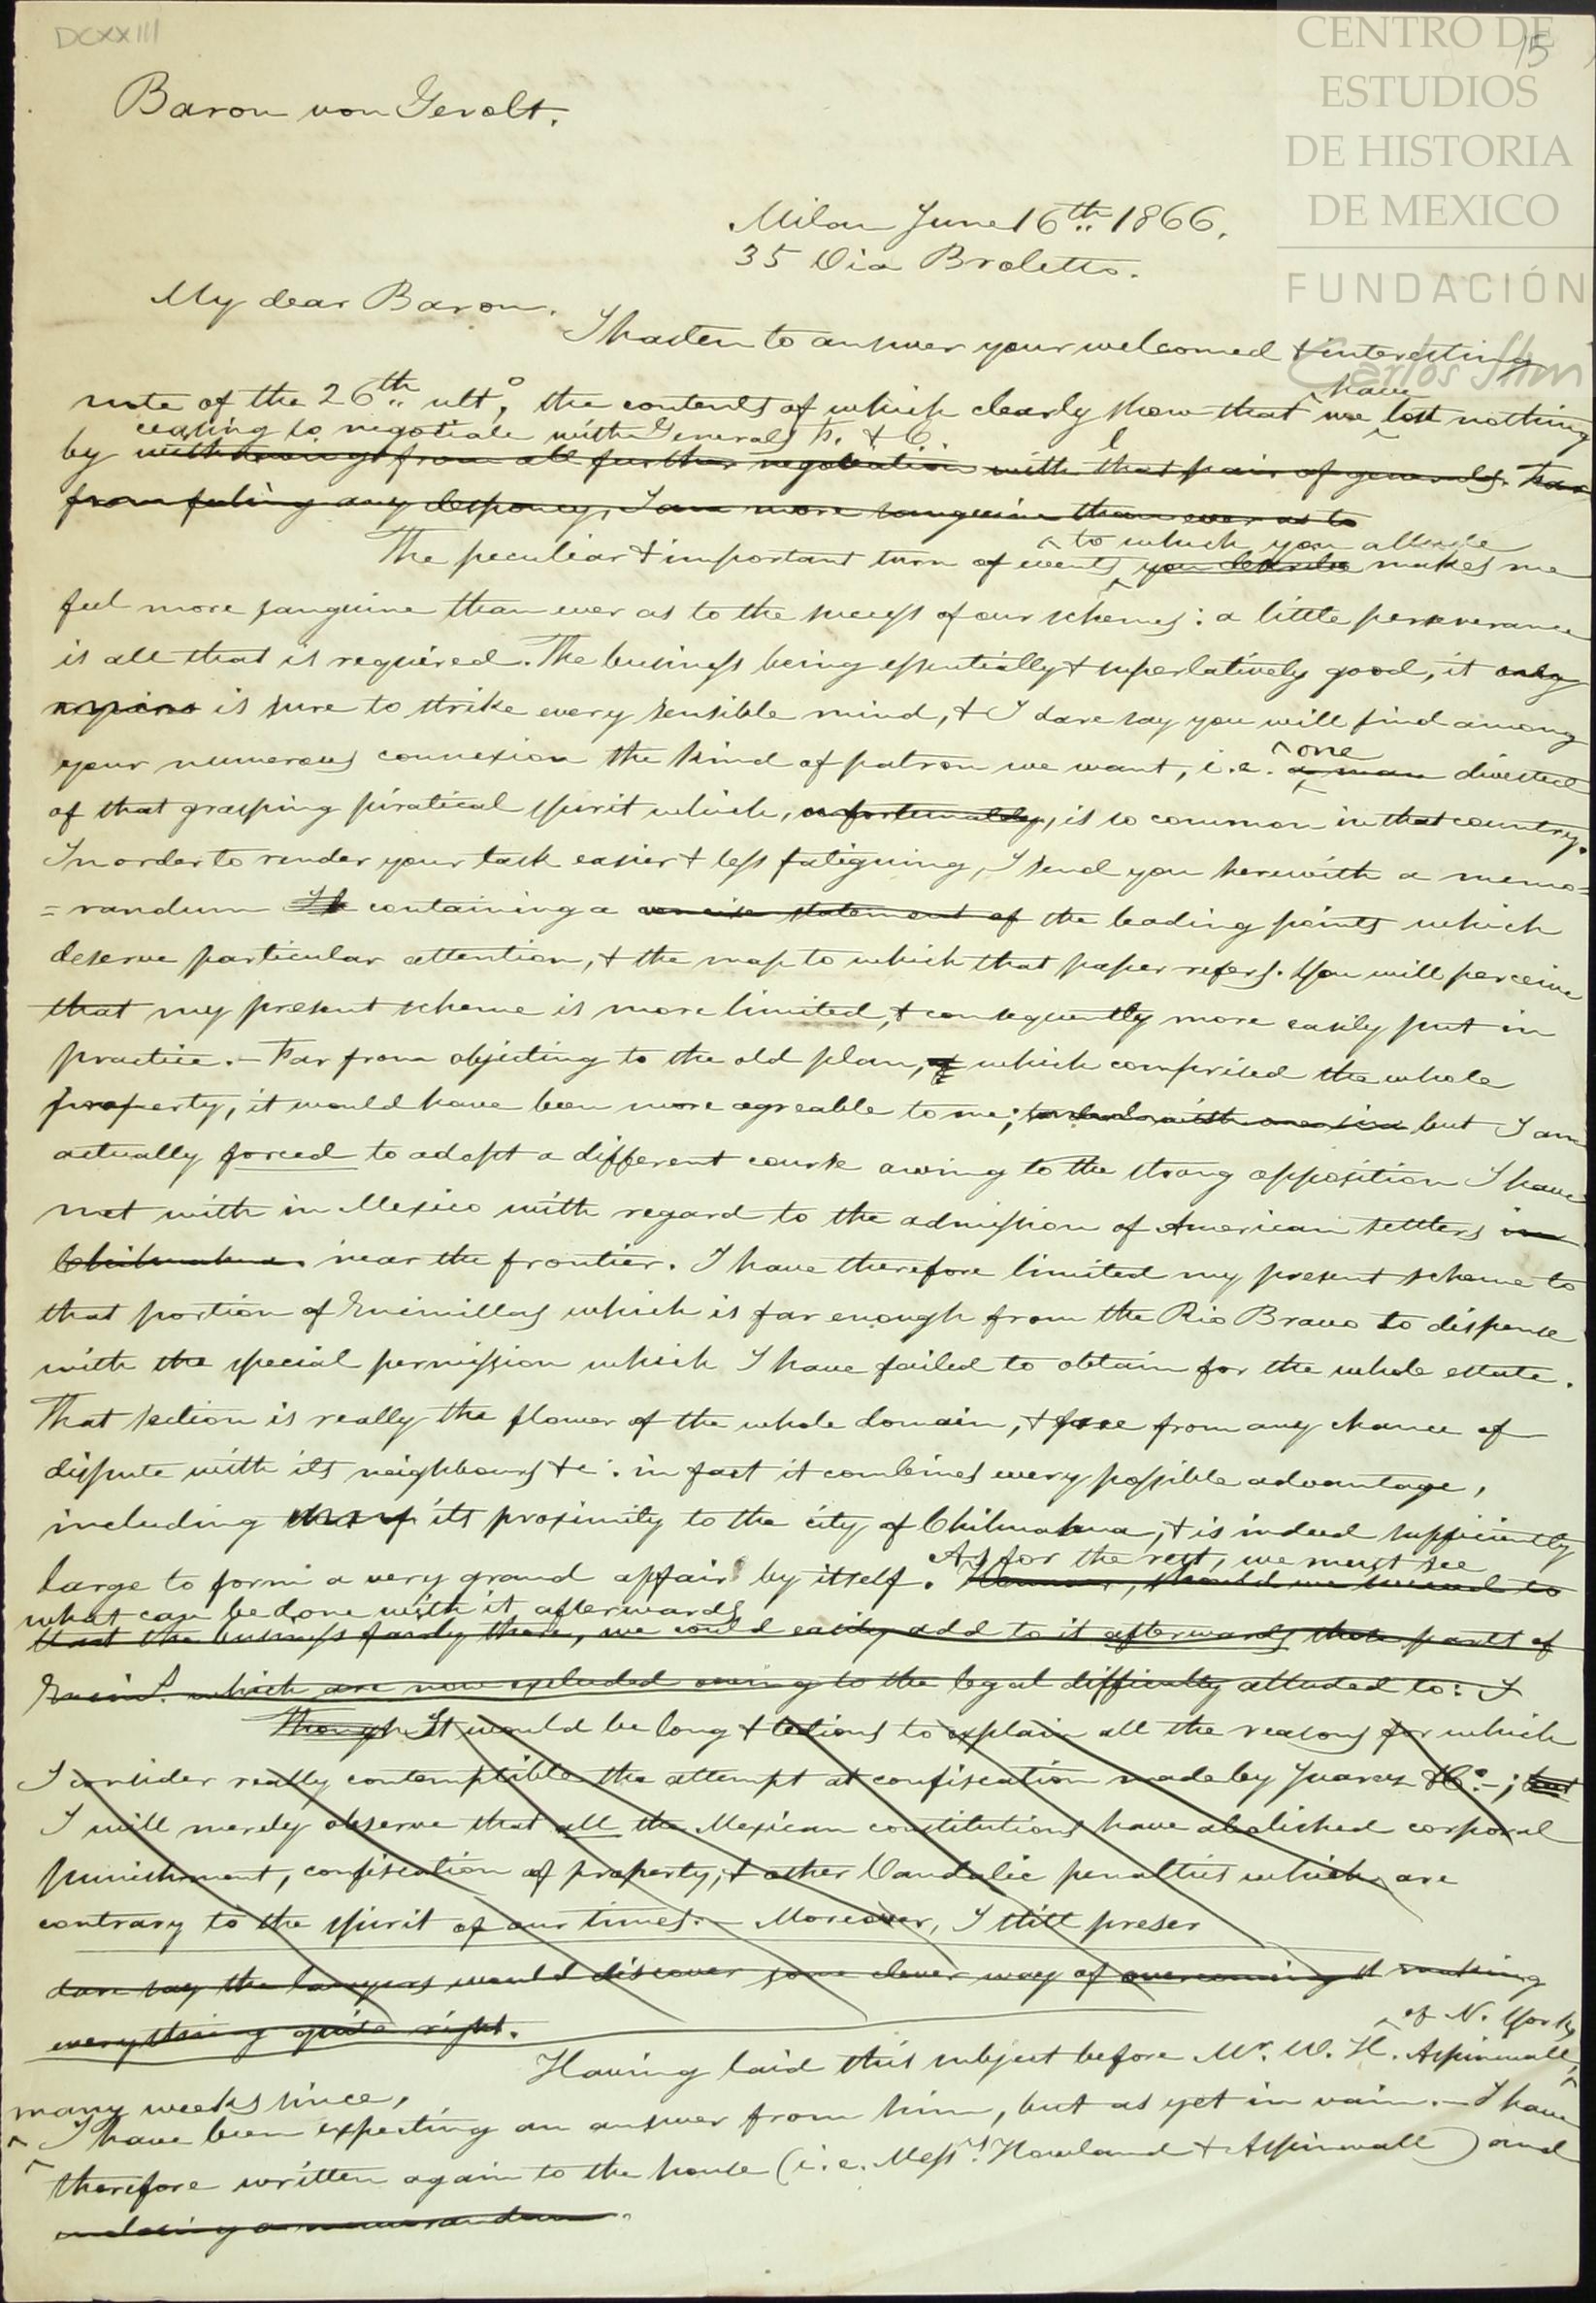 DCXXIII
15
CENTRO DE
ESTUDIOS
DE HISTORIA
DE MEXICO
FUNDACIÓN
Carlos Slim
Baron von Gerolt.
Milan June 16th 1866.
35 Via Broletto.
My dear Baron.
I hasten to answer your welcomed & interesting
note of the 26th ulto, the contents of which clearly show that we have lost nothing
ceasing to negotiate with Generals F. & C.
by withdrawing from all further negotiation with that pair of generals. Far
from feeling any desponcy, I am more sanguine than ever as to
to which you allude
The peculiar & important turn of events you describe makes me
feel more sanguine than ever as to the success of our schemes: a little perseverance
is all that is required. The business being essentially & superlatively good, it only
requires is sure to strike every sensible mind, & I dare say you will find among
one
your numerous connexion the kind of patron we want, i.e. a man divested
of that grasping piratical spirit which, unfortunately, is so common in that country.
In order to render your task easier & less fatiguing, I send you herewith a memo=
=randum containing a concise statement of the leading points which
deserve particular attention, & the map to which that paper refers. You will perceive
that my present scheme is more limited, & consequently more easily put in
practice. - Far from objecting to the old plan, of which comprised the whole
property, it would have been more agreable to me; but I am
actually forced to adopt a different course owing to the strong opposition I have
met with in Mexico with regard to the admission of American settlers in
Chihuahua. near the frontier. I have therefore limited my present scheme to
that portion of Encinillas which is far enough from the Rio Bravo to dispense
with the special permission which I have failed to obtain for the whole estate.
That section is really the flower of the whole domain, & free from any chance of
dispute with its neighbours &c: in fact it combines every possible advantage,
including that of its proximity to the city of Chihuahua, & is indeed sufficiently
As for the rest, we must see
large to form a very grand affair by itself. However, should we succeed to
what can be done with it afterwards
that the business fairly there, we could easily add to it afterwards those parts of
Encins. which are now excluded owing to the legal difficulty alluded to: I
Though It would be long & tedious to explain all the reasons for which
I consider really contemptible the attempt at confiscation made by Juarez & Co. -; but
I will merely observe that all the Mexican constitutions have abolished corporal
punishment, confiscation of property, & other Vandalic penalties which are
contrary to the spirit of our times. - Moreover, I still preser
dare say the lawyers would discover some clever way of overcoming it making
everything quite right.
of N. York,
Having laid this subject before Mr. W. H. Aspinwall,
many weeks since,
I have been expecting an answer from him, but as yet in vain. - I have
therefore written again to the house (i.e. Messrs. Howland & Aspinwall) and
enclosing a memorandum.